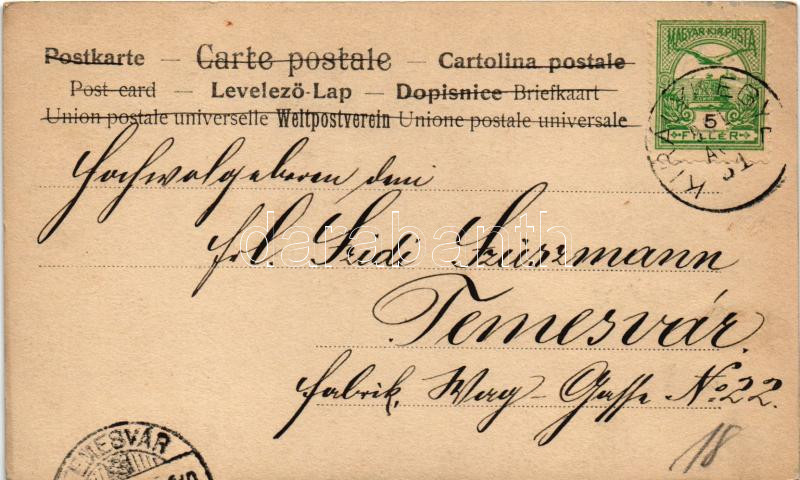 Postkarte — Carte postale — Cartolina postale
Post card — Levelező-Lap — Dopisnice Briefkaart
Union postale universelle Weltpostverein Unione postale universale
MAGYAR KIR. POSTA
5
FILLÉR
Hochwolgeboren dem
Frl. Szidi
Temesvár.
Fabrik, Wag-Gasse No 22.
darabanth
TEMESVÁR
18